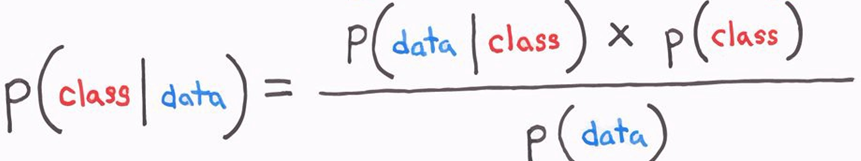 p(class|data) = p(data|class) × p(class)
p(data)